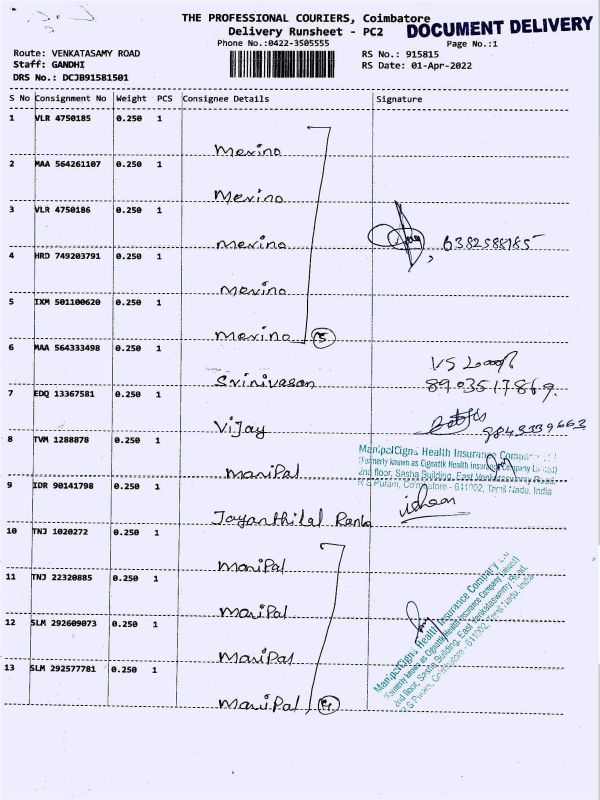 THE PROFESSIONAL COURIERS, Coimbatore
DOCUMENT DELIVERY
Delivery Runsheet - PC2
Phone No.:0422-3505555
Page No.:1
Route: VENKATASAMY ROAD
RS No.: 915815
Staff: GANDHI
RS Date: 01-Apr-2022
DRS No.: DCJB91581501
S No Consignment No Weight PCS Consignee Details Signature
1 VLR 4750185 0.250 1
Merino
2 MAA 564261107 0.250 1
Merino
3 VLR 4750186 0.250 1
Merino 6382588185
4 HRD 749203791 0.250 1
Merino
5 IXM 501100620 0.250 1
Merino 5
6 MAA 564333498 0.250 1
Srinivasan 8903517869.
7 EDQ 13367581 0.250 1
Vijay 9843339663
8 TVM 1288878 0.250 1
ManiPal
ManipalCigna Health Insurance Company
(Formerly known as CignaTTK Health Insurance Company Limited)
2nd floor, Sasha Building, East Venkataswamy Road,
R S Puram, Coimbatore - 611002, Tamil Nadu, India
9 IDR 90141798 0.250 1
Jayanthilal Ranka
10 TNJ 1020272 0.250 1
ManiPal
11 TNJ 22320885 0.250 1
ManiPal
12 SLM 292609073 0.250 1
ManiPal
13 SLM 292577781 0.250 1
ManiPal 4
ManipalCigna Health Insurance Company
(Formerly known as CignaTTK Health Insurance Company Limited)
2nd floor, Sasha Building, East Venkataswamy Road,
R S Puram, Coimbatore - 611002, Tamil Nadu, India